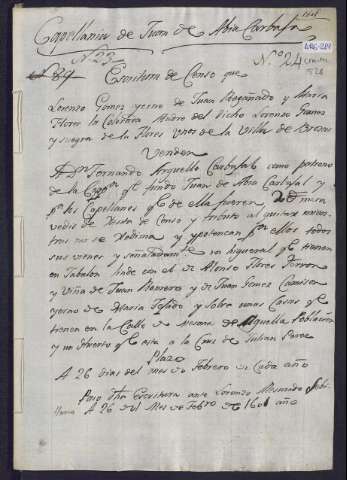 1601
Capellania de Juan de Abia Carbajal
N.º 23
N.º 24
Escritura de Censo que
Lorenzo Gomez yerno de Juan Rogonado y Maria
Flores la Casitera Madre del dicho Lorenzo Gomez
y suegra de la Flores vnos de la Villa de Brozas
Venden
A D.n Fernando Arguello Carbajal como patrono
de la Cap.n q.e fundo Juan de Abia Carbajal y
p.a los Capellanes q.e de ella fueren, 20 mil mara
vedis de Renta de Censo y tributo al quitar mien
tras no se Redima y ypotecan p.r ellos todos
sus vienes y senaladam.te un higueral q.e tienen
en Tabalon linde con el de Alonso Flores Perron
y Viña de Juan Herrero y de Juan Gomez
yerno de Maria Tejado y sobre unas Casas q.e
tienen en la Calle de de Aquella Poblacion
y un Huerto q.e esta a la Cruz de Julian Perez
Plazo
A 26 dias del mes de Febrero de Cada año
Paso Dha Escritura ante Lorenzo
A 26 del Mes de Feb.ro de 1601 año